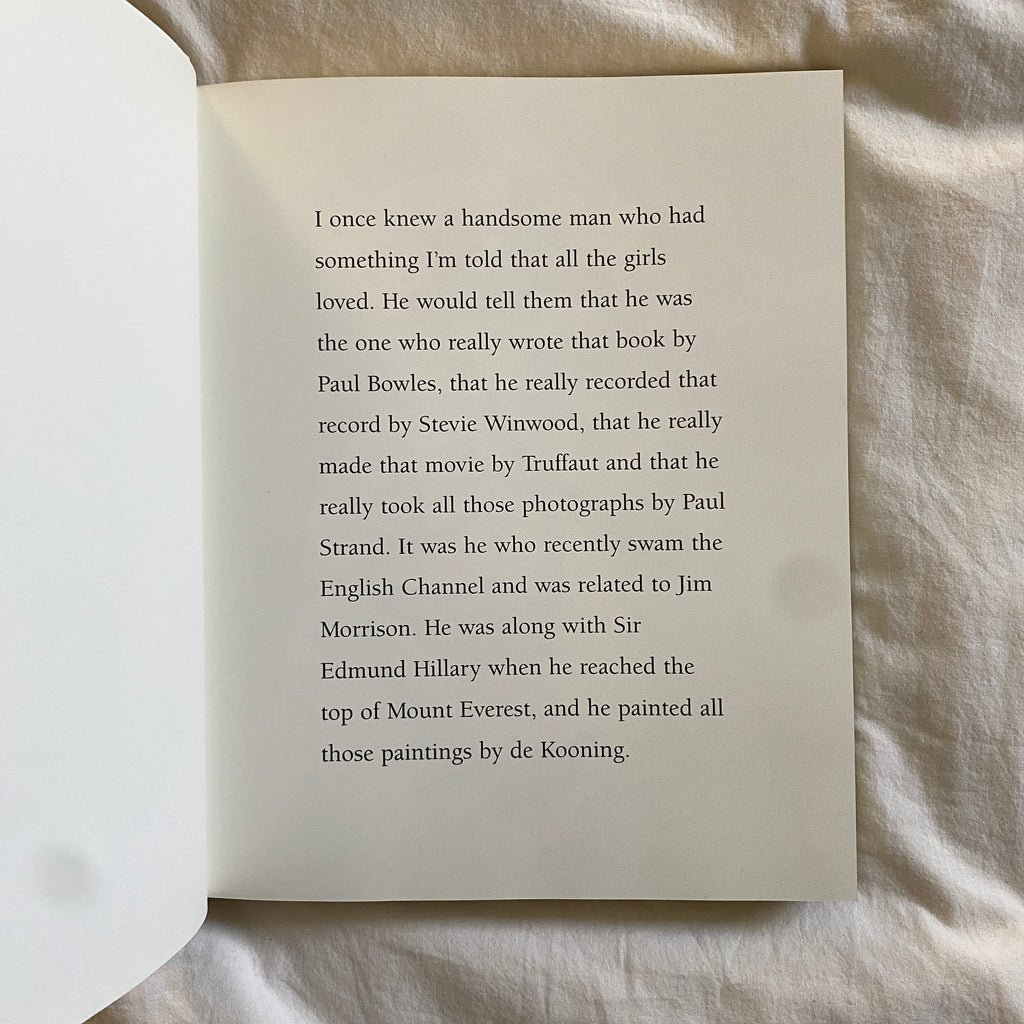 I once knew a handsome man who had
something I'm told that all the girls
loved. He would tell them that he was
the one who really wrote that book by
Paul Bowles, that he really recorded that
record by Stevie Winwood, that he really
made that movie by Truffaut and that he
really took all those photographs by Paul
Strand. It was he who recently swam the
English Channel and was related to Jim
Morrison. He was along with Sir
Edmund Hillary when he reached the
top of Mount Everest, and he painted all
those paintings by de Kooning.